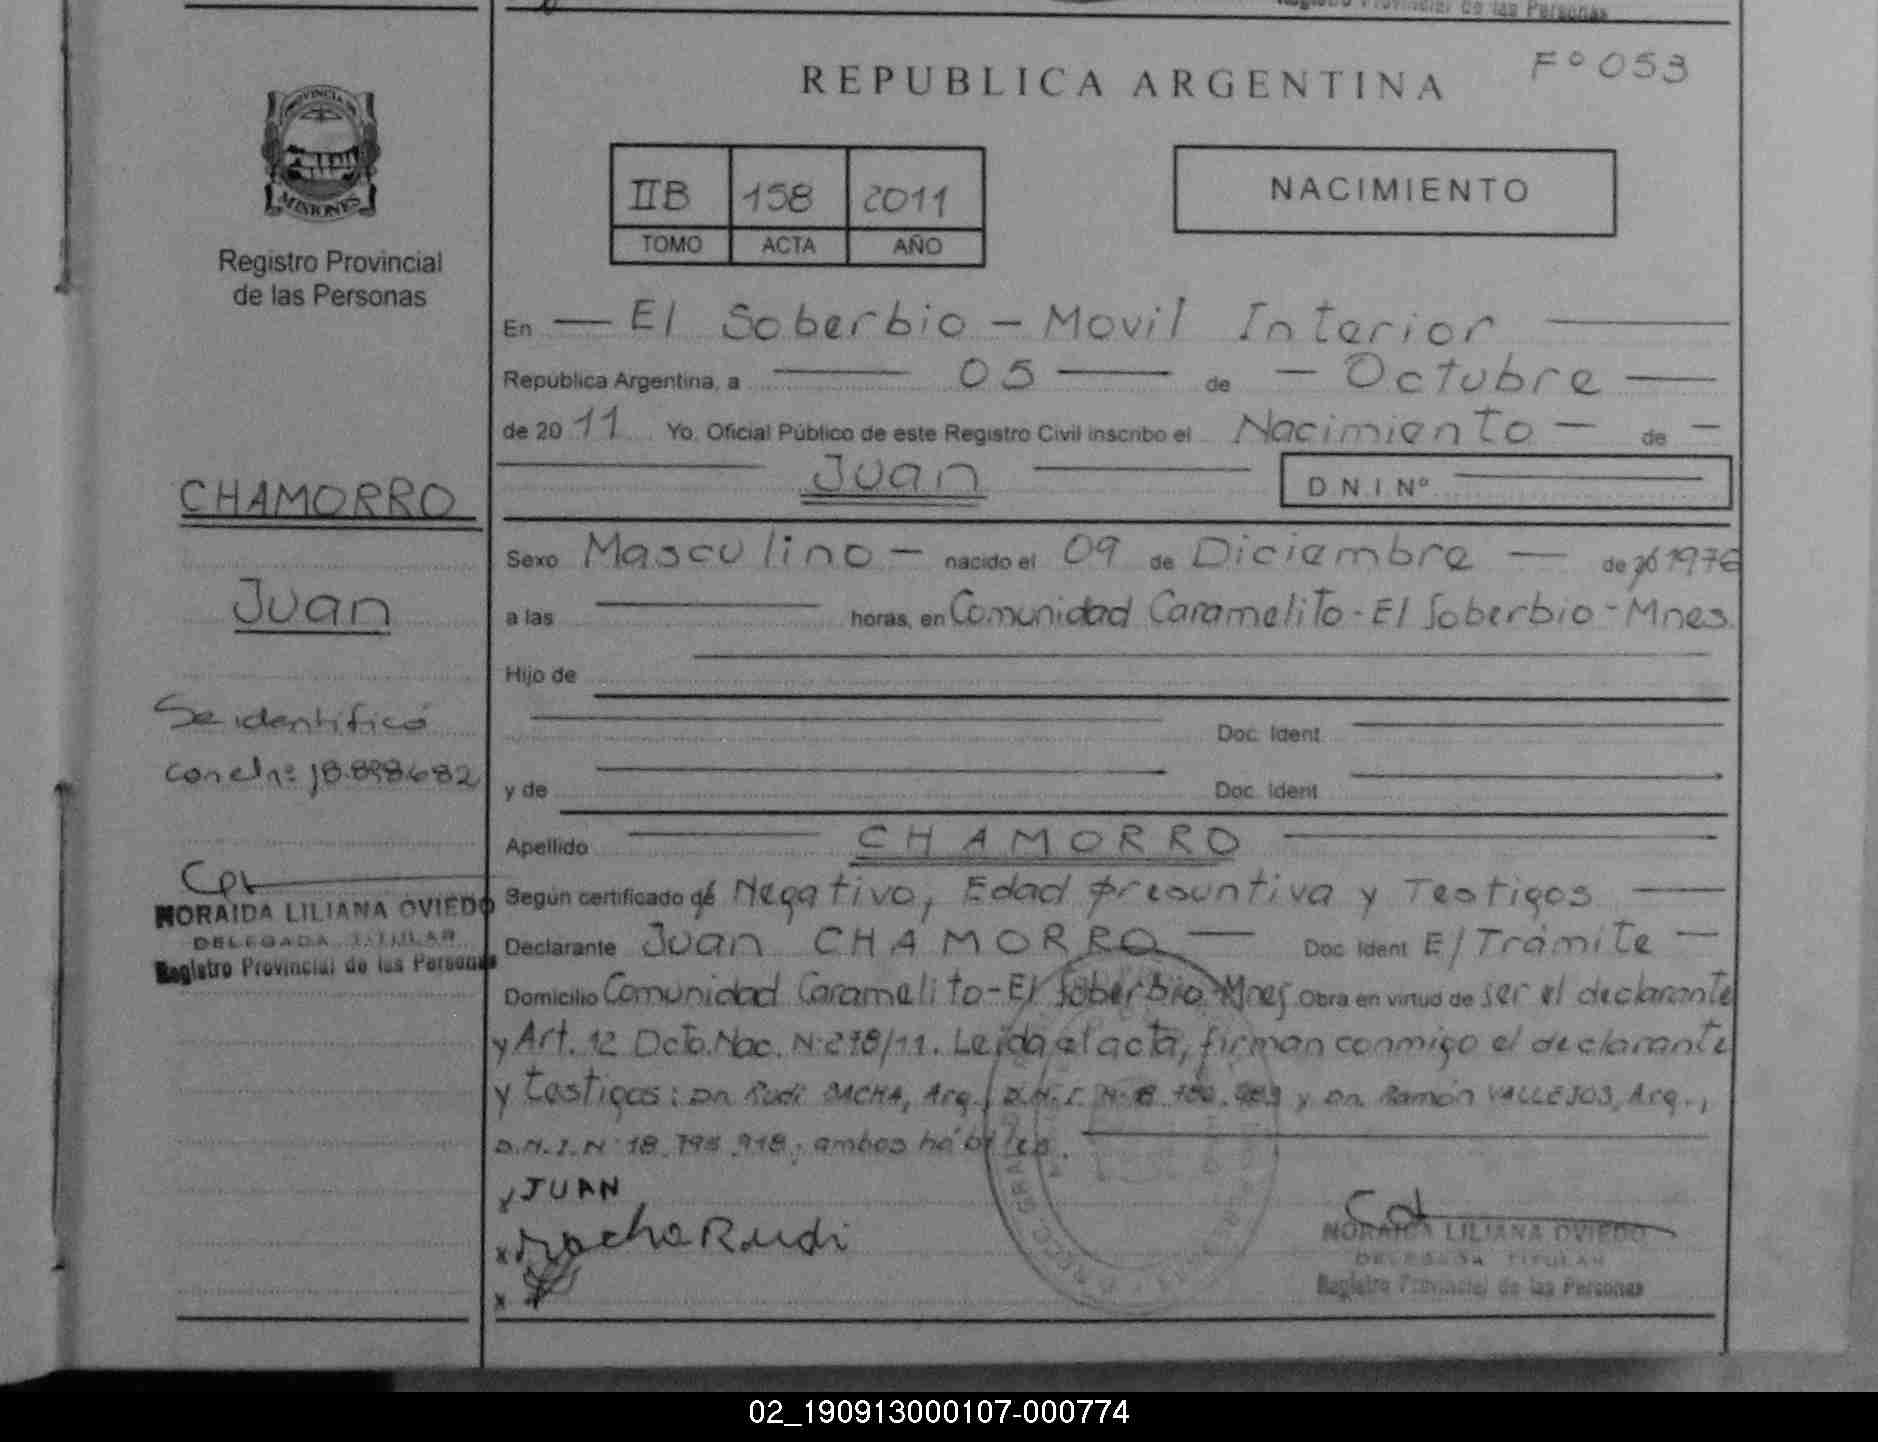 Registro Provincial de las Personas
REPUBLICA ARGENTINA
Fº 053
PROVINCIA DE
MISIONES
Registro Provincial
de las Personas
IIB 158 2011
TOMO ACTA AÑO
NACIMIENTO
En El Soberbio - Movil Interior
República Argentina, a 05 de Octubre
de 2011 Yo, Oficial Público de este Registro Civil inscribo el Nacimiento de
Juan
D.N.I. Nº
Sexo Masculino nacido el 09 de Diciembre de 1976
a las horas, en Comunidad Caramelito - El Soberbio - Mnes.
Hijo de
Doc. Ident.
y de Doc. Ident.
Apellido CHAMORRO
Según certificado de Negativo, Edad presuntiva y Testigos
Declarante Juan CHAMORRO Doc. Ident E/Trámite
Domicilio Comunidad Caramelito - El Soberbio - Mnes Obra en virtud de ser el declarante
y Art. 12 Dcto. Nac. Nº 278/11. Leída el acta, firman conmigo el declarante
y testigos: Dn. Rudi Arg., D.N.I. Nº y Dn. Ramón VALLEJOS, Arg.,
D.N.I. Nº 18.795.918; ambos hábiles.
x JUAN
x Rudi
x
NORAIDA LILIANA OVIEDO
DELEGADA TITULAR
Registro Provincial de las Personas
CHAMORRO
Juan
Se identificó
con el nº
NORAIDA LILIANA OVIEDO
DELEGADA TITULAR
Registro Provincial de las Personas
02_190913000107-000774